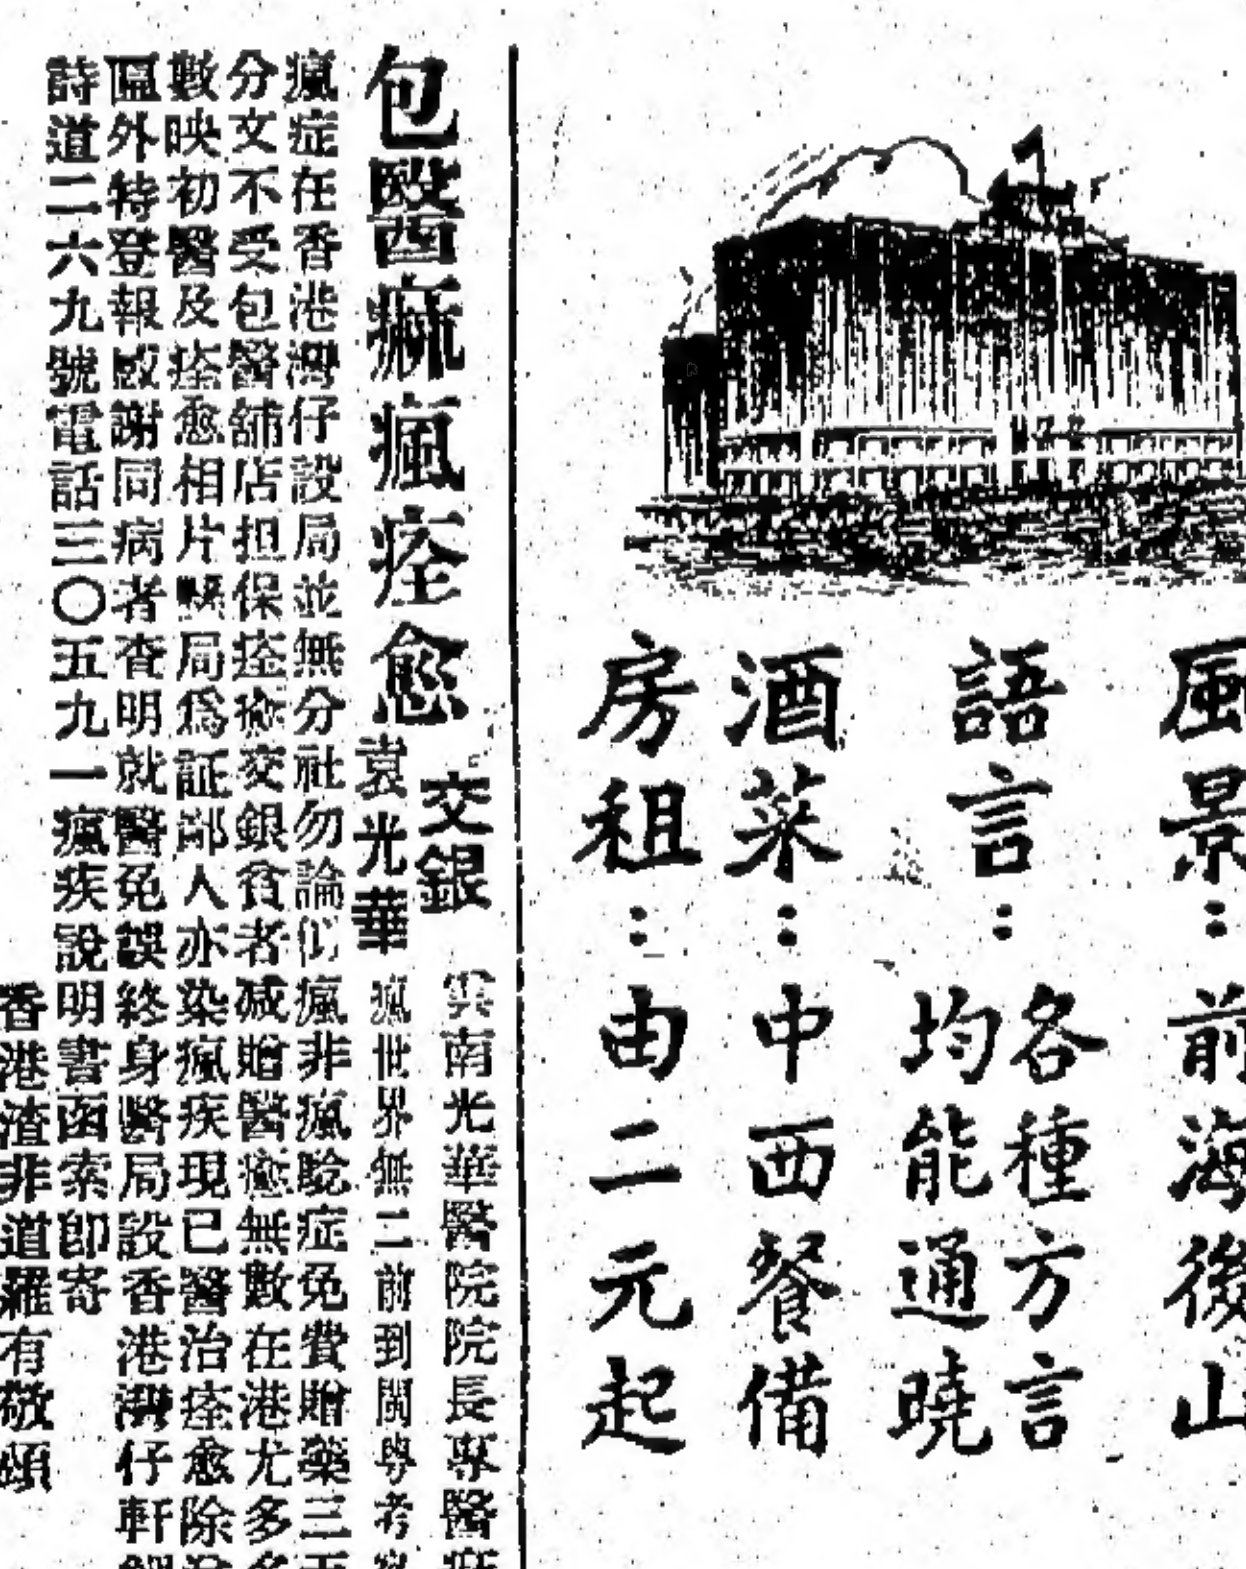 風景：前海後山
語言：各種方言
均能通曉
酒菜：中西餐備
房租：由二元起
包醫痳瘋痊愈
交銀
袁光華
雲南光華醫院院長專醫
瘋世界無二前到閩粤考
瘋症在香港灣仔設局並無分社勿論似瘋非瘋晥症免費贈藥三
分文不受包醫舖店担保痊癒交銀貧者减贈醫癒無數在港尤多
數映初醫及痊愈相片醫局爲証鄙人亦染瘋疾現已醫治痊愈除
匾外特登報感謝同病者查明就醫免誤終身醫局設香港灣仔軒
詩道二六九號電話三〇五九一瘋疾說明書函索卽寄
香港渣菲道羅有敬頌